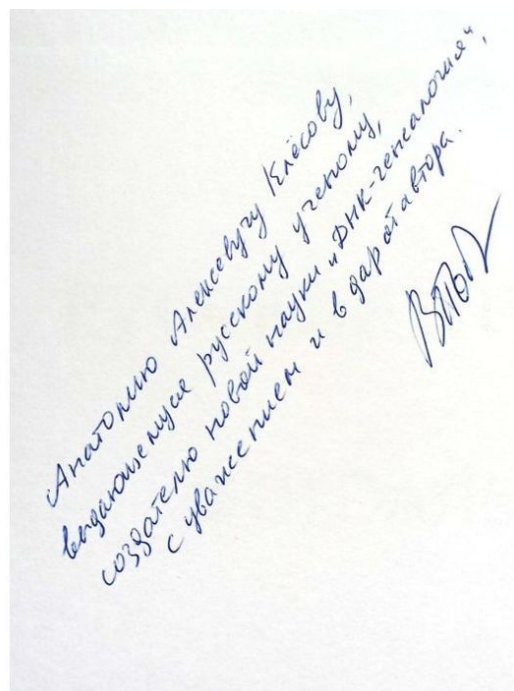 Анатолию Алексеевучу Клёсову,
выдающемуся русскому ученому,
создателю новой науки „ДНК-генеалогия",
с уважением и в дар от автора.